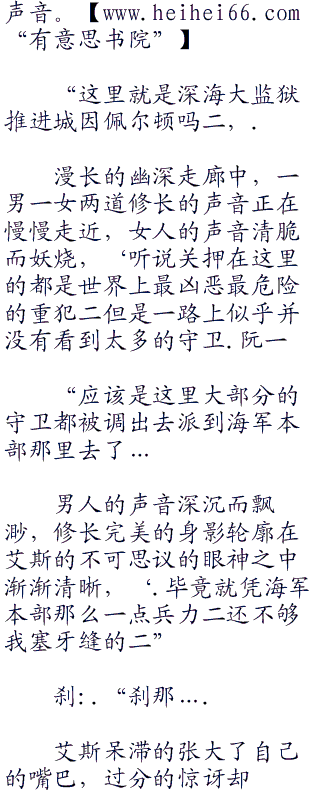 声音。【www.heihei66.com
“有意思书院”】
“这里就是深海大监狱
推进城因佩尔顿吗二，.
漫长的幽深走廊中，一
男一女两道修长的声音正在
慢慢走近，女人的声音清脆
而妖烧，‘听说关押在这里
的都是世界上最凶恶最危险
的重犯二但是一路上似乎并
没有看到太多的守卫.阮一
“应该是这里大部分的
守卫都被调出去派到海军本
部那里去了...
男人的声音深沉而飘
渺，修长完美的身影轮廓在
艾斯的不可思议的眼神之中
渐渐清晰，‘.毕竟就凭海军
本部那么一点兵力二还不够
我塞牙缝的二”
刹:.“刹那....
艾斯呆滞的张大了自己
的嘴巴，过分的惊讶却